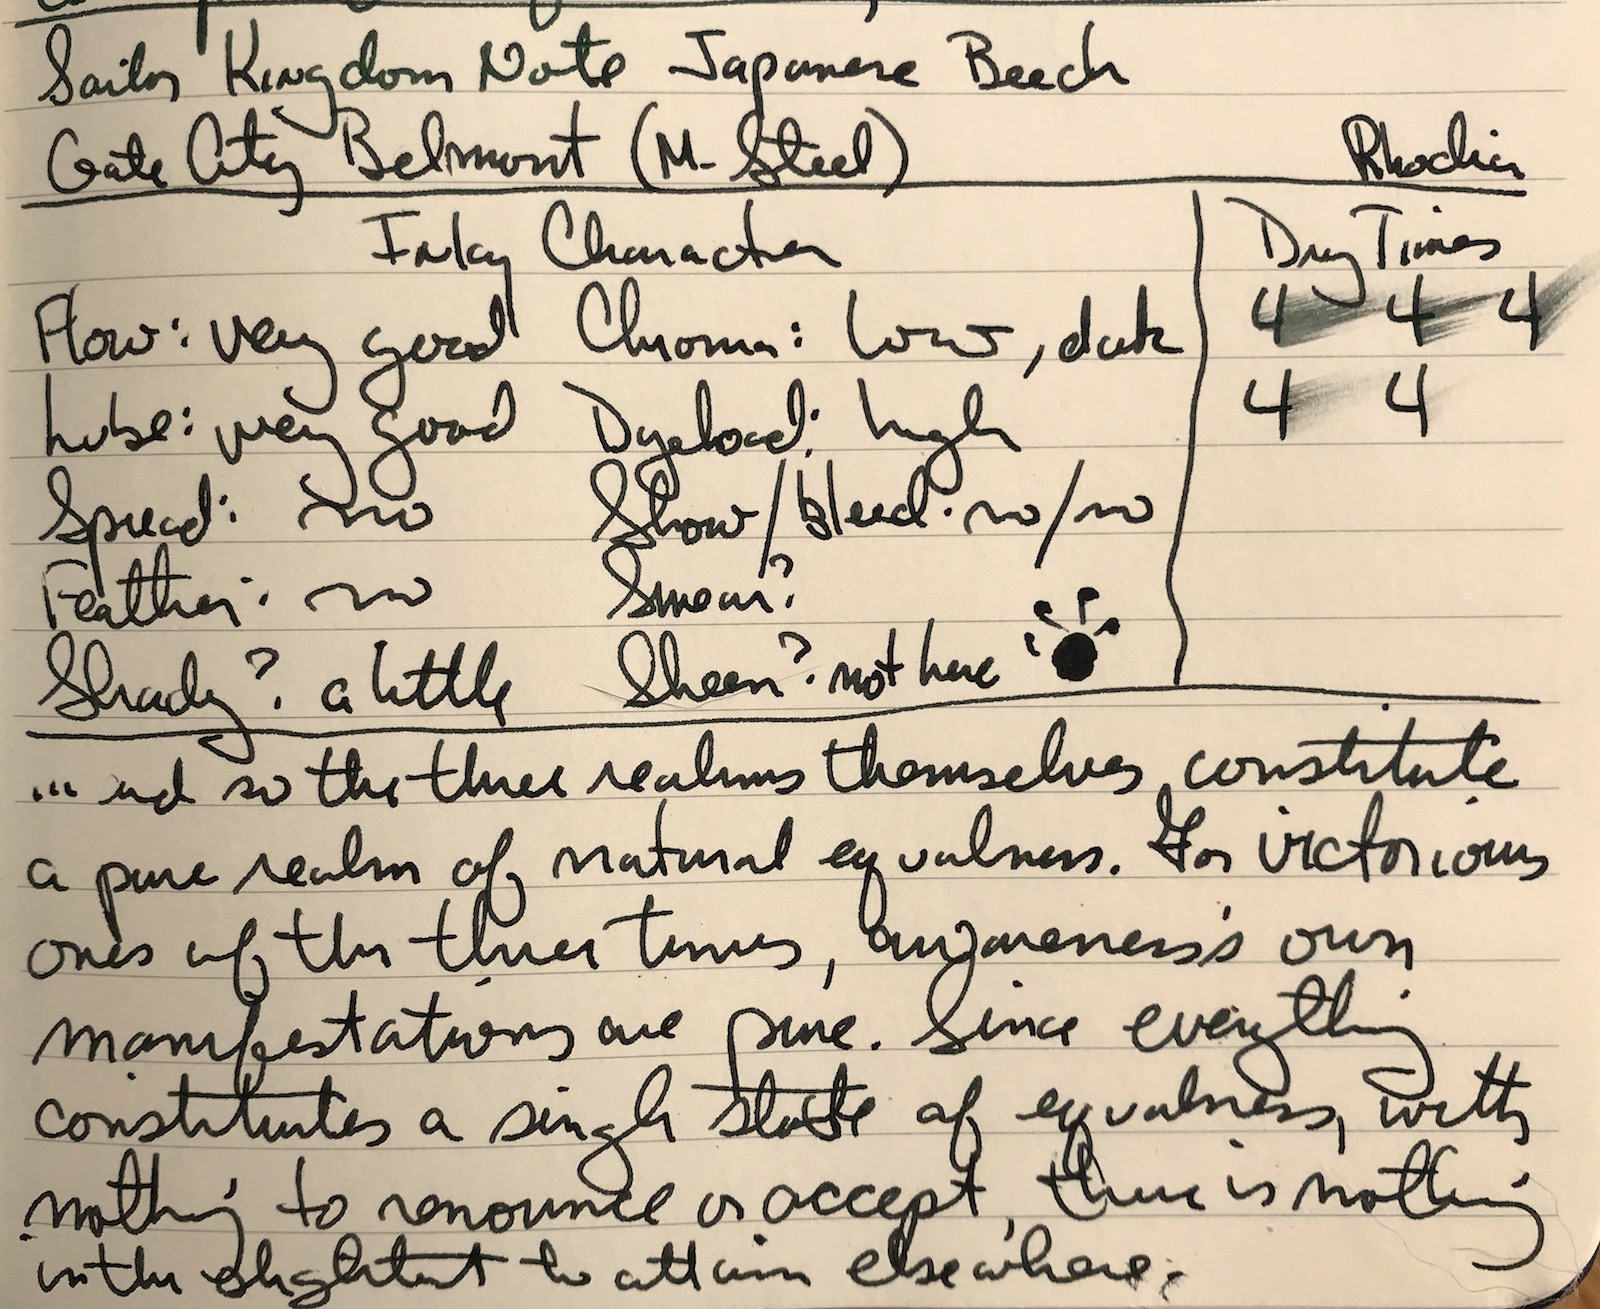 Sailor Kingdom Note Japanese Beech
Gate City Belmont (M-Steel) Rhodia
Inky Character Dry Times
Flow: very good Chroma: low, dark 4 4 4
Lube: very good Dyeload: high 4 4
Spread: no Show/bleed: no/no
Feather: no Smear?
Shady? a little Sheen? not here
... and so the three realms themselves constitute
a pure realm of natural equalness. For victorious
ones of the three times, awareness's own
manifestations are pure. Since everything
constitutes a single state of equalness, with
nothing to renounce or accept, there is nothing
in the slightest to attain elsewhere.